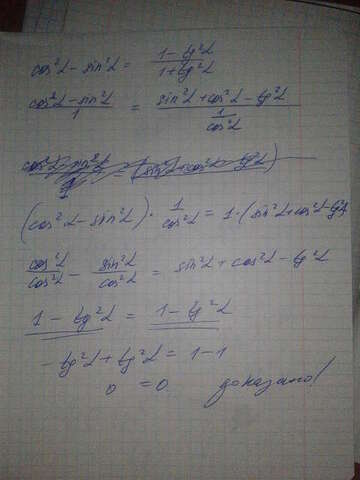 cos²α - sin²α = (1 - tg²α)/(1 + tg²α)
(cos²α - sin²α)/1 = (sin²α + cos²α - tg²α)/(1/cos²α)
(cos²α - sin²α) · 1/cos²α = 1 · (sin²α + cos²α - tg²α)
cos²α/cos²α - sin²α/cos²α = sin²α + cos²α - tg²α
1 - tg²α = 1 - tg²α
- tg²α + tg²α = 1 - 1
0 = 0 доказано!